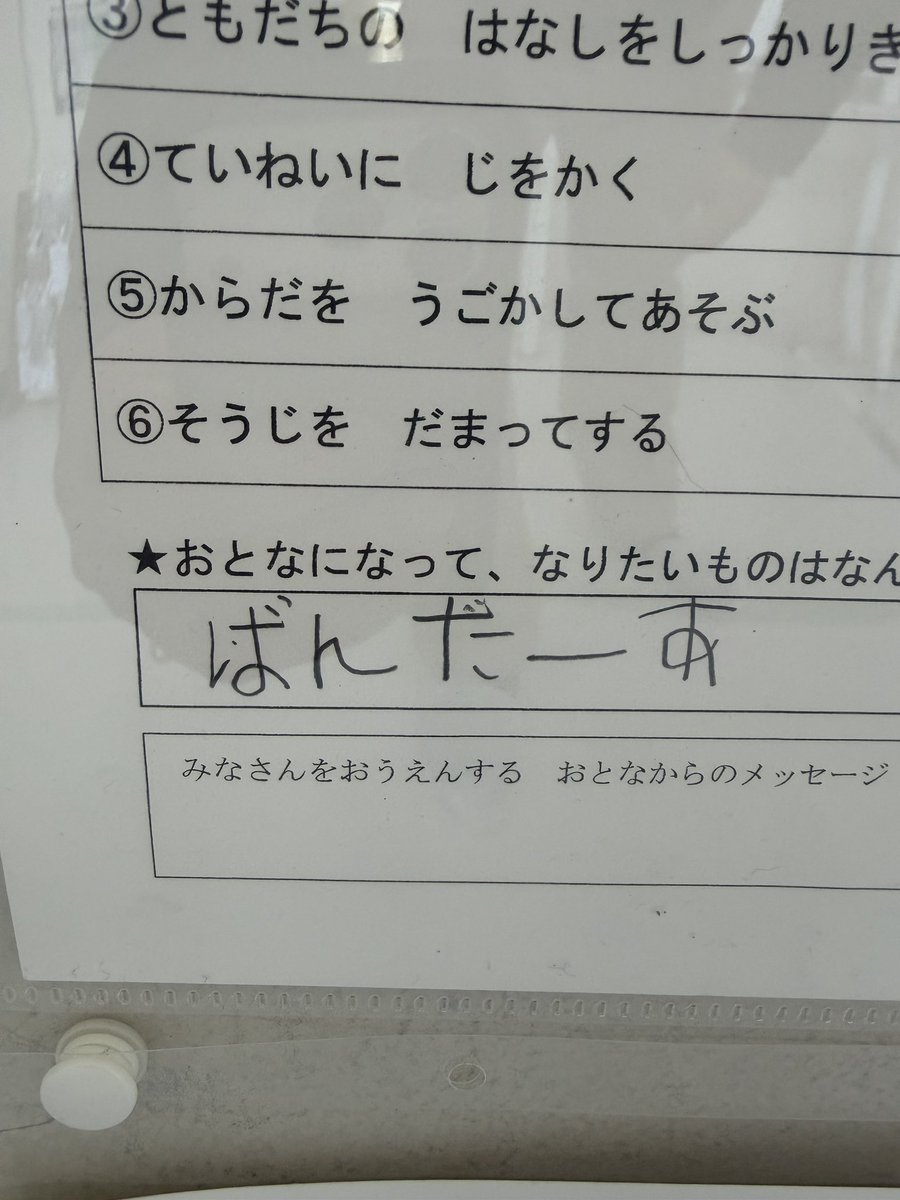 ③ともだちの　はなしをしっかりき
④ていねいに　じをかく
⑤からだを　うごかしてあそぶ
⑥そうじを　だまってする
★おとなになって、なりたいものはなん
ばんだーす
みなさんをおうえんする　おとなからのメッセージ